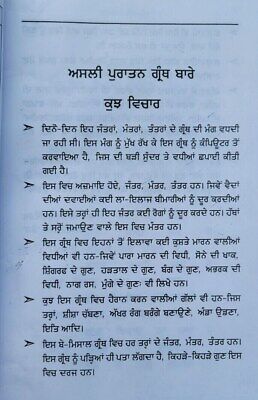 ਅਸਲੀ ਪੁਰਾਤਨ ਗ੍ਰੰਥ ਬਾਰੇ
ਕੁਝ ਵਿਚਾਰ
➤ ਦਿਨੋ-ਦਿਨ ਇਹ ਜੰਤਰਾਂ, ਮੰਤਰਾਂ, ਤੰਤਰਾਂ ਦੇ ਗ੍ਰੰਥ ਦੀ ਮੰਗ ਵਧਦੀ
ਜਾ ਰਹੀ ਸੀ। ਇਸ ਮੰਗ ਨੂੰ ਮੁੱਖ ਰੱਖ ਕੇ ਇਸ ਗ੍ਰੰਥ ਨੂੰ ਕੰਪਿਊਟਰ ਤੋਂ
ਕਰਵਾਇਆ ਹੈ, ਜਿਸ ਦੀ ਬੜੀ ਸੁੰਦਰ ਤੇ ਵਧੀਆਂ ਛਪਾਈ ਕੀਤੀ
ਗਈ ਹੈ।
➤ ਇਸ ਵਿਚ ਅਜ਼ਮਾਇ ਹੋਏ, ਜੰਤਰ, ਮੰਤਰ, ਤੰਤਰ ਹਨ। ਜਿਵੇਂ ਵੈਦਾਂ
ਦੀਆਂ ਦਵਾਈਆਂ ਕਈ ਲਾ-ਇਲਾਜ ਬੀਮਾਰੀਆਂ ਨੂੰ ਦੂਰ ਕਰਦੇ
ਹਨ। ਇਸੇ ਤਰ੍ਹਾਂ ਹੀ ਇਹ ਜੰਤਰ ਕਈ ਰੋਗਾਂ ਨੂੰ ਦੂਰ ਕਰਦੇ ਹਨ। ਹੱਥਾਂ
ਤੇ ਸਰ੍ਹੋਂ ਜਮਾਉਣ ਵਾਲੇ ਇਸ ਵਿਚ ਮੰਤਰ ਹਨ।
➤ ਇਸ ਗ੍ਰੰਥ ਵਿਚ ਇਹਨਾਂ ਤੋਂ ਇਲਾਵਾ ਕਈ ਕੁਸ਼ਤੇ ਮਾਰਨ ਵਾਲੀਆਂ
ਵਿਧੀਆਂ ਵੀ ਹਨ-ਜਿਵੇਂ ਪਾਰਾ ਮਾਰਨ ਦੀ ਵਿਧੀ, ਸੋਨੇ ਦੀ ਖਾਕ,
ਸ਼ਿੰਗਰਫ ਦੇ ਗੁਣ, ਹੜਤਾਲ ਦੇ ਗੁਣ, ਬੰਗ ਦੇ ਗੁਣ, ਅਭਰਕ ਦੀ
ਵਿਧੀ, ਨਾਗ ਰਸ, ਮੂੰਗੇ ਦੇ ਗੁਣ: ਵੀ ਲਿਖੇ ਹਨ।
➤ ਕੁਝ ਇਸ ਗ੍ਰੰਥ ਵਿਚ ਹੈਰਾਨ ਕਰਨ ਵਾਲੀਆਂ ਗੱਲਾਂ ਵੀ ਹਨ-ਜਿਸ
ਤਰ੍ਹਾਂ, ਸ਼ੀਸ਼ਾ ਚੱਬਣਾ, ਅੱਖਰ ਰੰਗ ਬਰੰਗੇ ਬਣਾਉਣੇ, ਅੰਡਾ ਉਡਣਾ,
ਇਤਿ ਆਦਿ।
➤ ਇਸ ਬੇ-ਮਿਸਾਲ ਗ੍ਰੰਥ ਵਿਚ ਹਰ ਤਰ੍ਹਾਂ ਦੇ ਜੰਤਰ, ਮੰਤਰ, ਤੰਤਰ ਹਨ।
ਇਸ ਗ੍ਰੰਥ ਨੂੰ ਪੜ੍ਹਿਆਂ ਹੀ ਪਤਾ ਲੱਗਦਾ ਹੈ, ਕਿਹੜੇ-ਕਿਹੜੇ ਗੁਣ ਇਸ
ਵਿਚ ਦਰਜ ਹਨ।